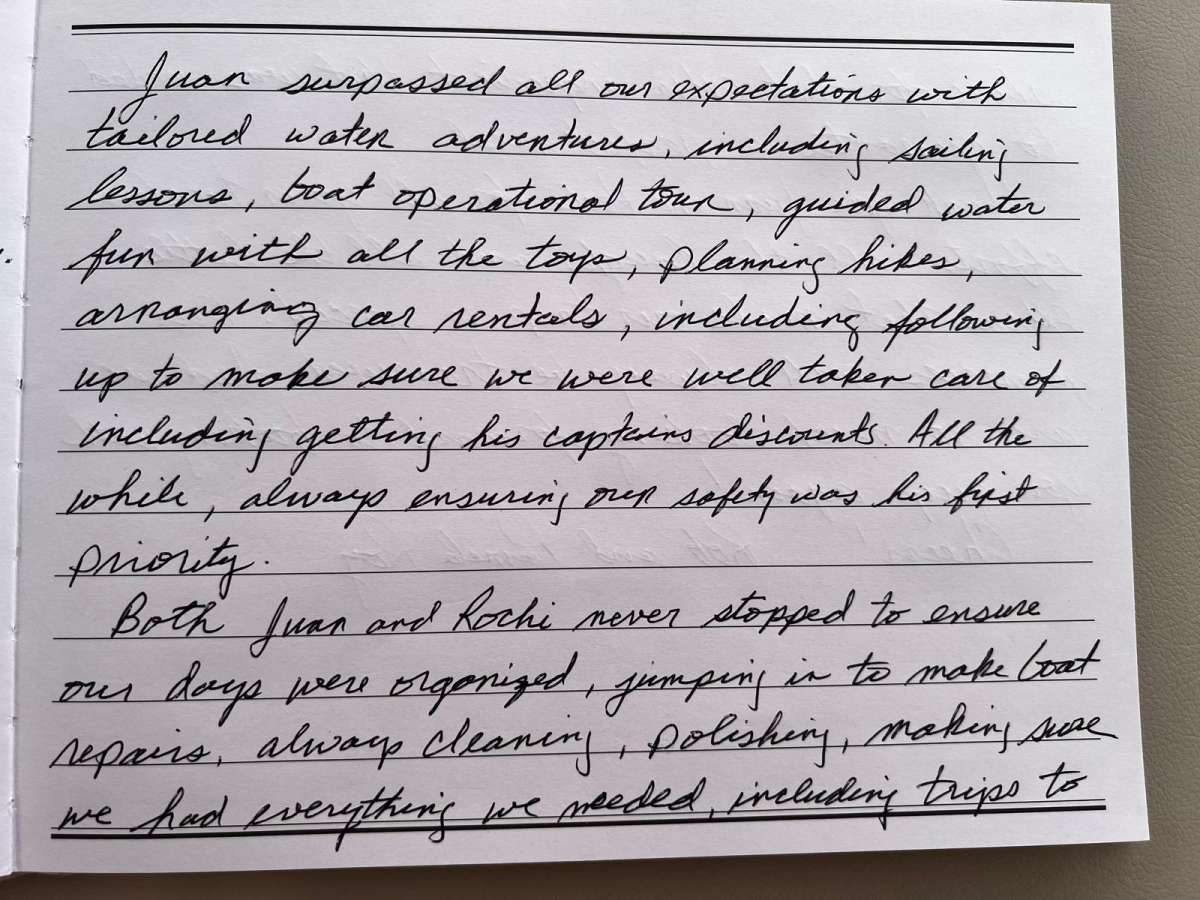 Juan surpassed all our expectations with
tailored water adventures, including sailing
lessons, boat operational tour, guided water
fun with all the toys, planning hikes,
arranging car rentals, including following
up to make sure we were well taken care of
including getting his captains discounts. All the
while, always ensuring our safety was his first
priority.
Both Juan and Rochi never stopped to ensure
our days were organized, jumping in to make boat
repairs, always cleaning, polishing, making sure
we had everything we needed, including trips to